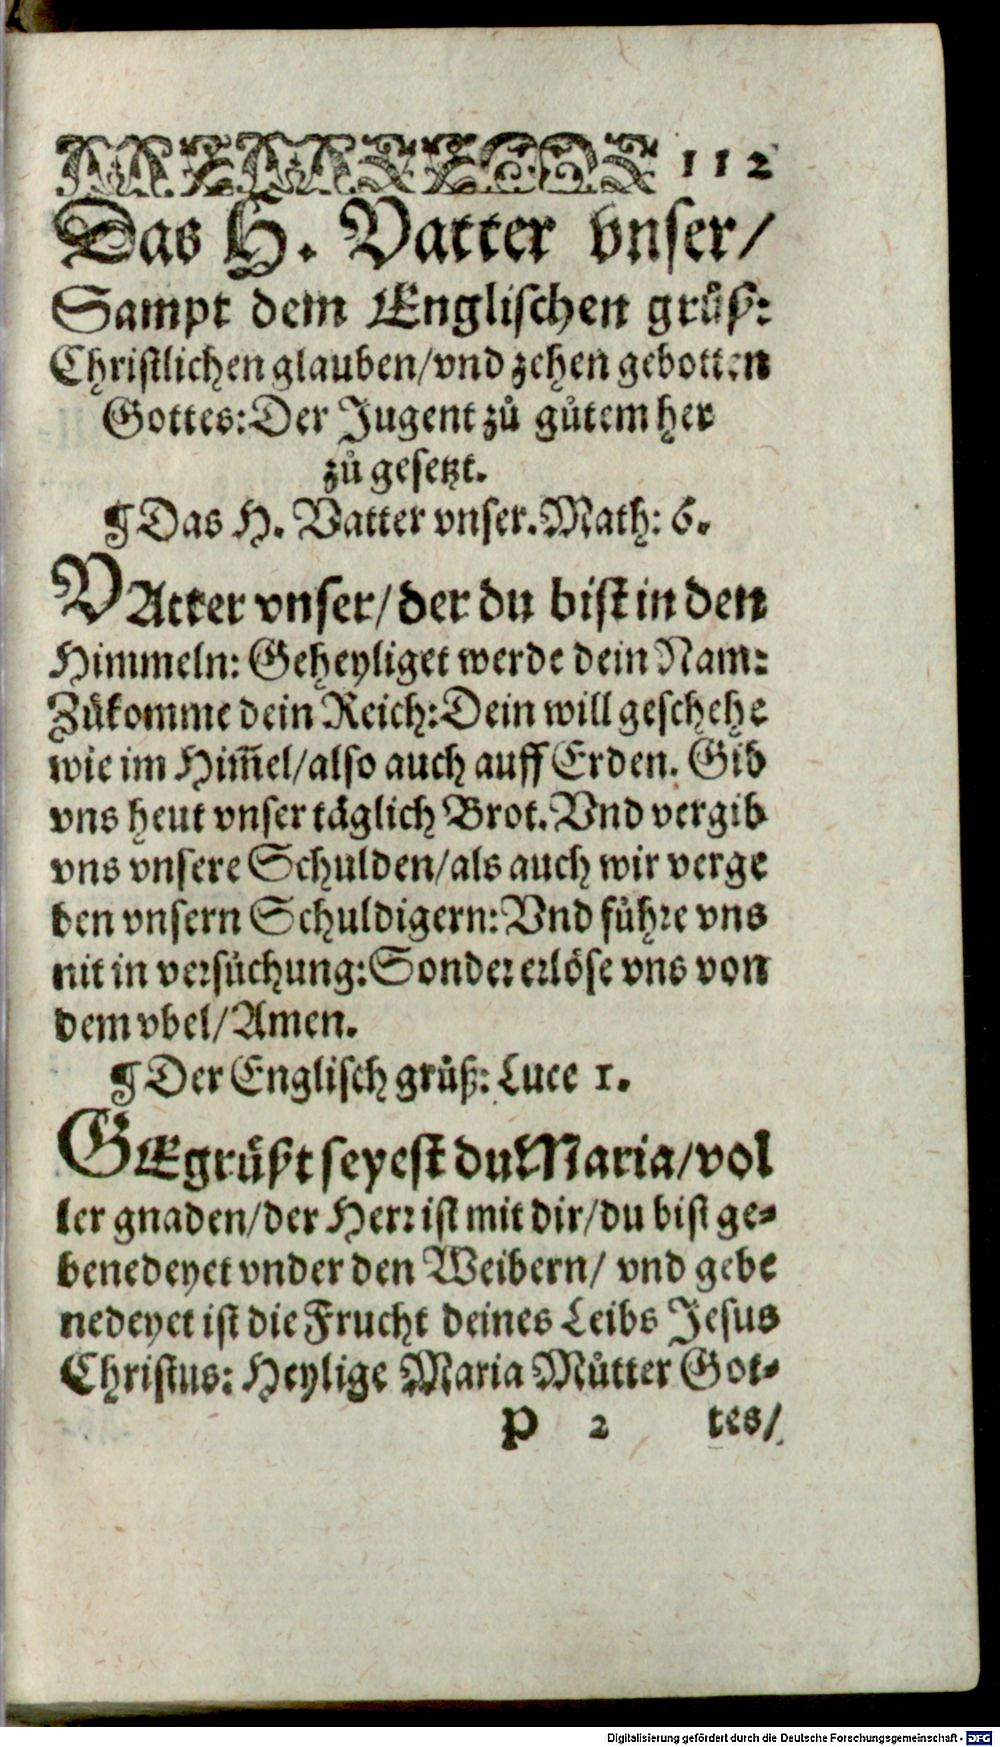 112
Das H. Vatter vnser/
Sampt dem Englischen gruͦß:
Christlichen glauben/vnd zehen gebotten
Gottes: Der Jugent zuͦ guͦtem her
zuͦ gesetzt.
¶ Das H. Vatter vnser. Math: 6.
VAtter vnser/ der du bist in den
Himmeln: Geheyliget werde dein Nam:
Zuͦkomme dein Reich: Dein will geschehe
wie im Him̃el/also auch auff Erden. Gib
vns heut vnser täglich Brot. Vnd vergib
vns vnsere Schulden/als auch wir verge
ben vnsern Schuldigern: Vnd fuͦhre vns
nit in versuͦchung: Sonder erlöse vns von
dem vbel/ Amen.
¶ Der Englisch gruͦß: Luce 1.
GEgruͤßt seyest du Maria/vol
ler gnaden/der Herr ist mit dir/du bist ge-
benedeyet vnder den Weibern/ vnd gebe
nedeyet ist die Frucht deines Leibs Jesus
Christus: Heylige Maria Muͦtter Got-
P 2 tes/
Digitalisierung gefördert durch die Deutsche Forschungsgemeinschaft - DFG